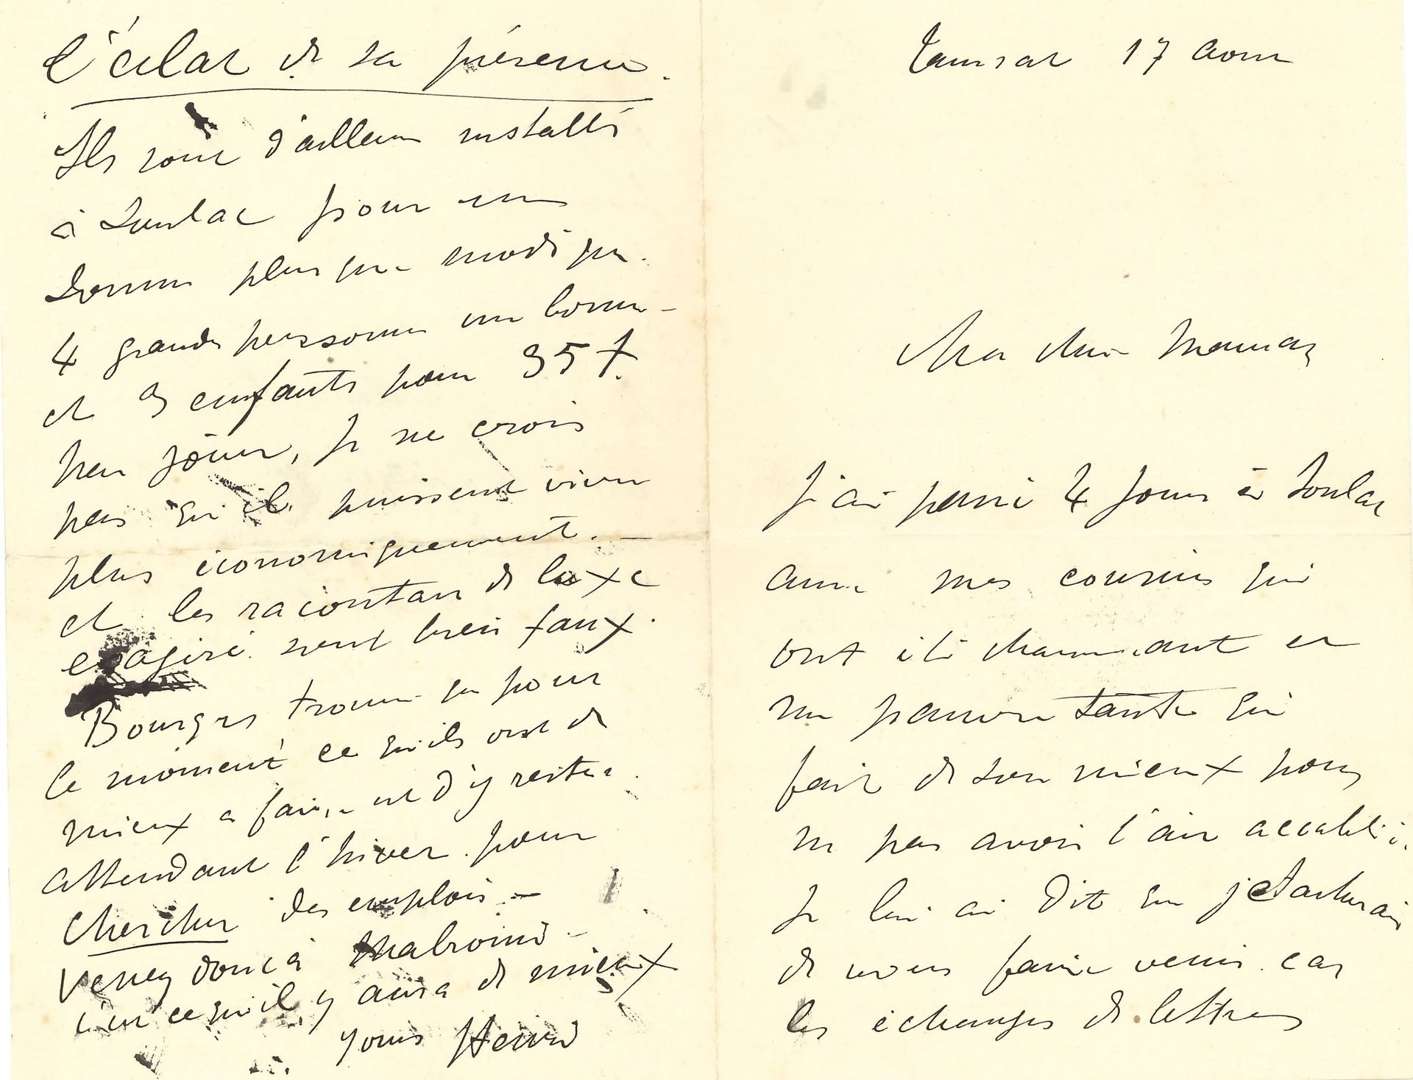 Taussat 17 Aout
Ma chère Maman
J'ai passé 4 jours à Soulac
avec mes cousins qui
ont été charmant et
ma pauvre tante qui
fait de son mieux pour
ne pas avoir l'air accablée.
Je lui ai dit que je tacherai
de vous faire venir car
les échanges de lettres
l'éclat de sa présence.
Ils sont d'ailleurs installés
à Soulac pour une
somme plus que modique.
4 grandes personnes une bonne
et 3 enfants pour 35 f.
par jour, je ne crois
pas qu'ils puissent vivre
plus économiquement. —
et les racontars de luxe
exagéré sont bien faux.
Bourges trouve que pour
le moment ce qu'ils ont de
mieux a faire est d'y rester
attendant l'hiver pour
chercher des emplois. —
Venez donc à Malromé —
c'est ce qu'il y aura de mieux
Yours Henri